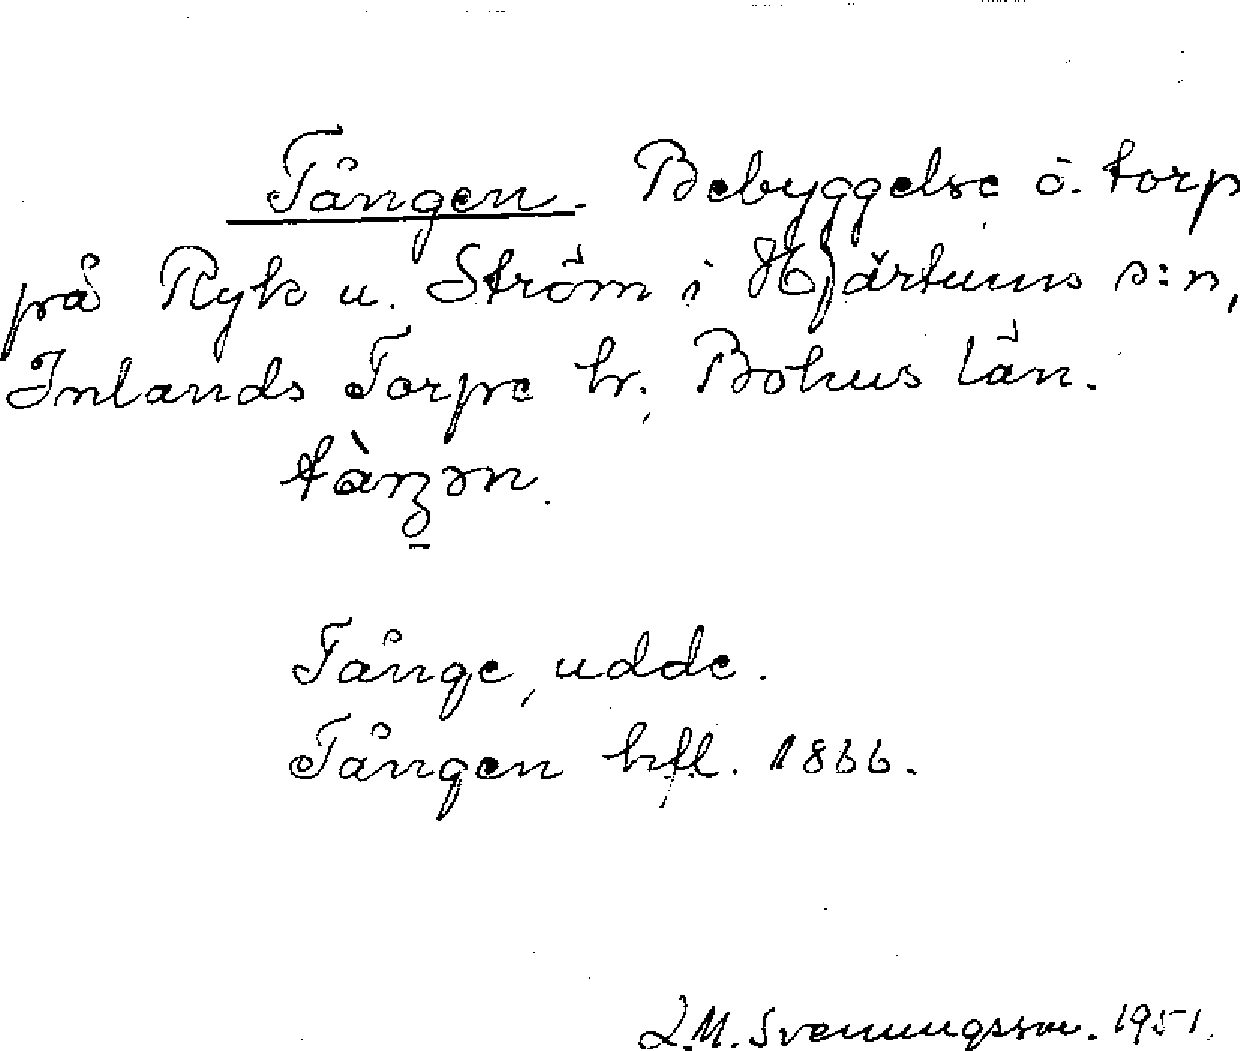 Tången. Bebyggelse ö. torp
på Ryk u. Ström i Hjärtums s:n,
Inlands Torpe hr. Bohus län.
Tånge, udde.
Tången hfl. 1866.
J.M. Svenungsson. 1951.